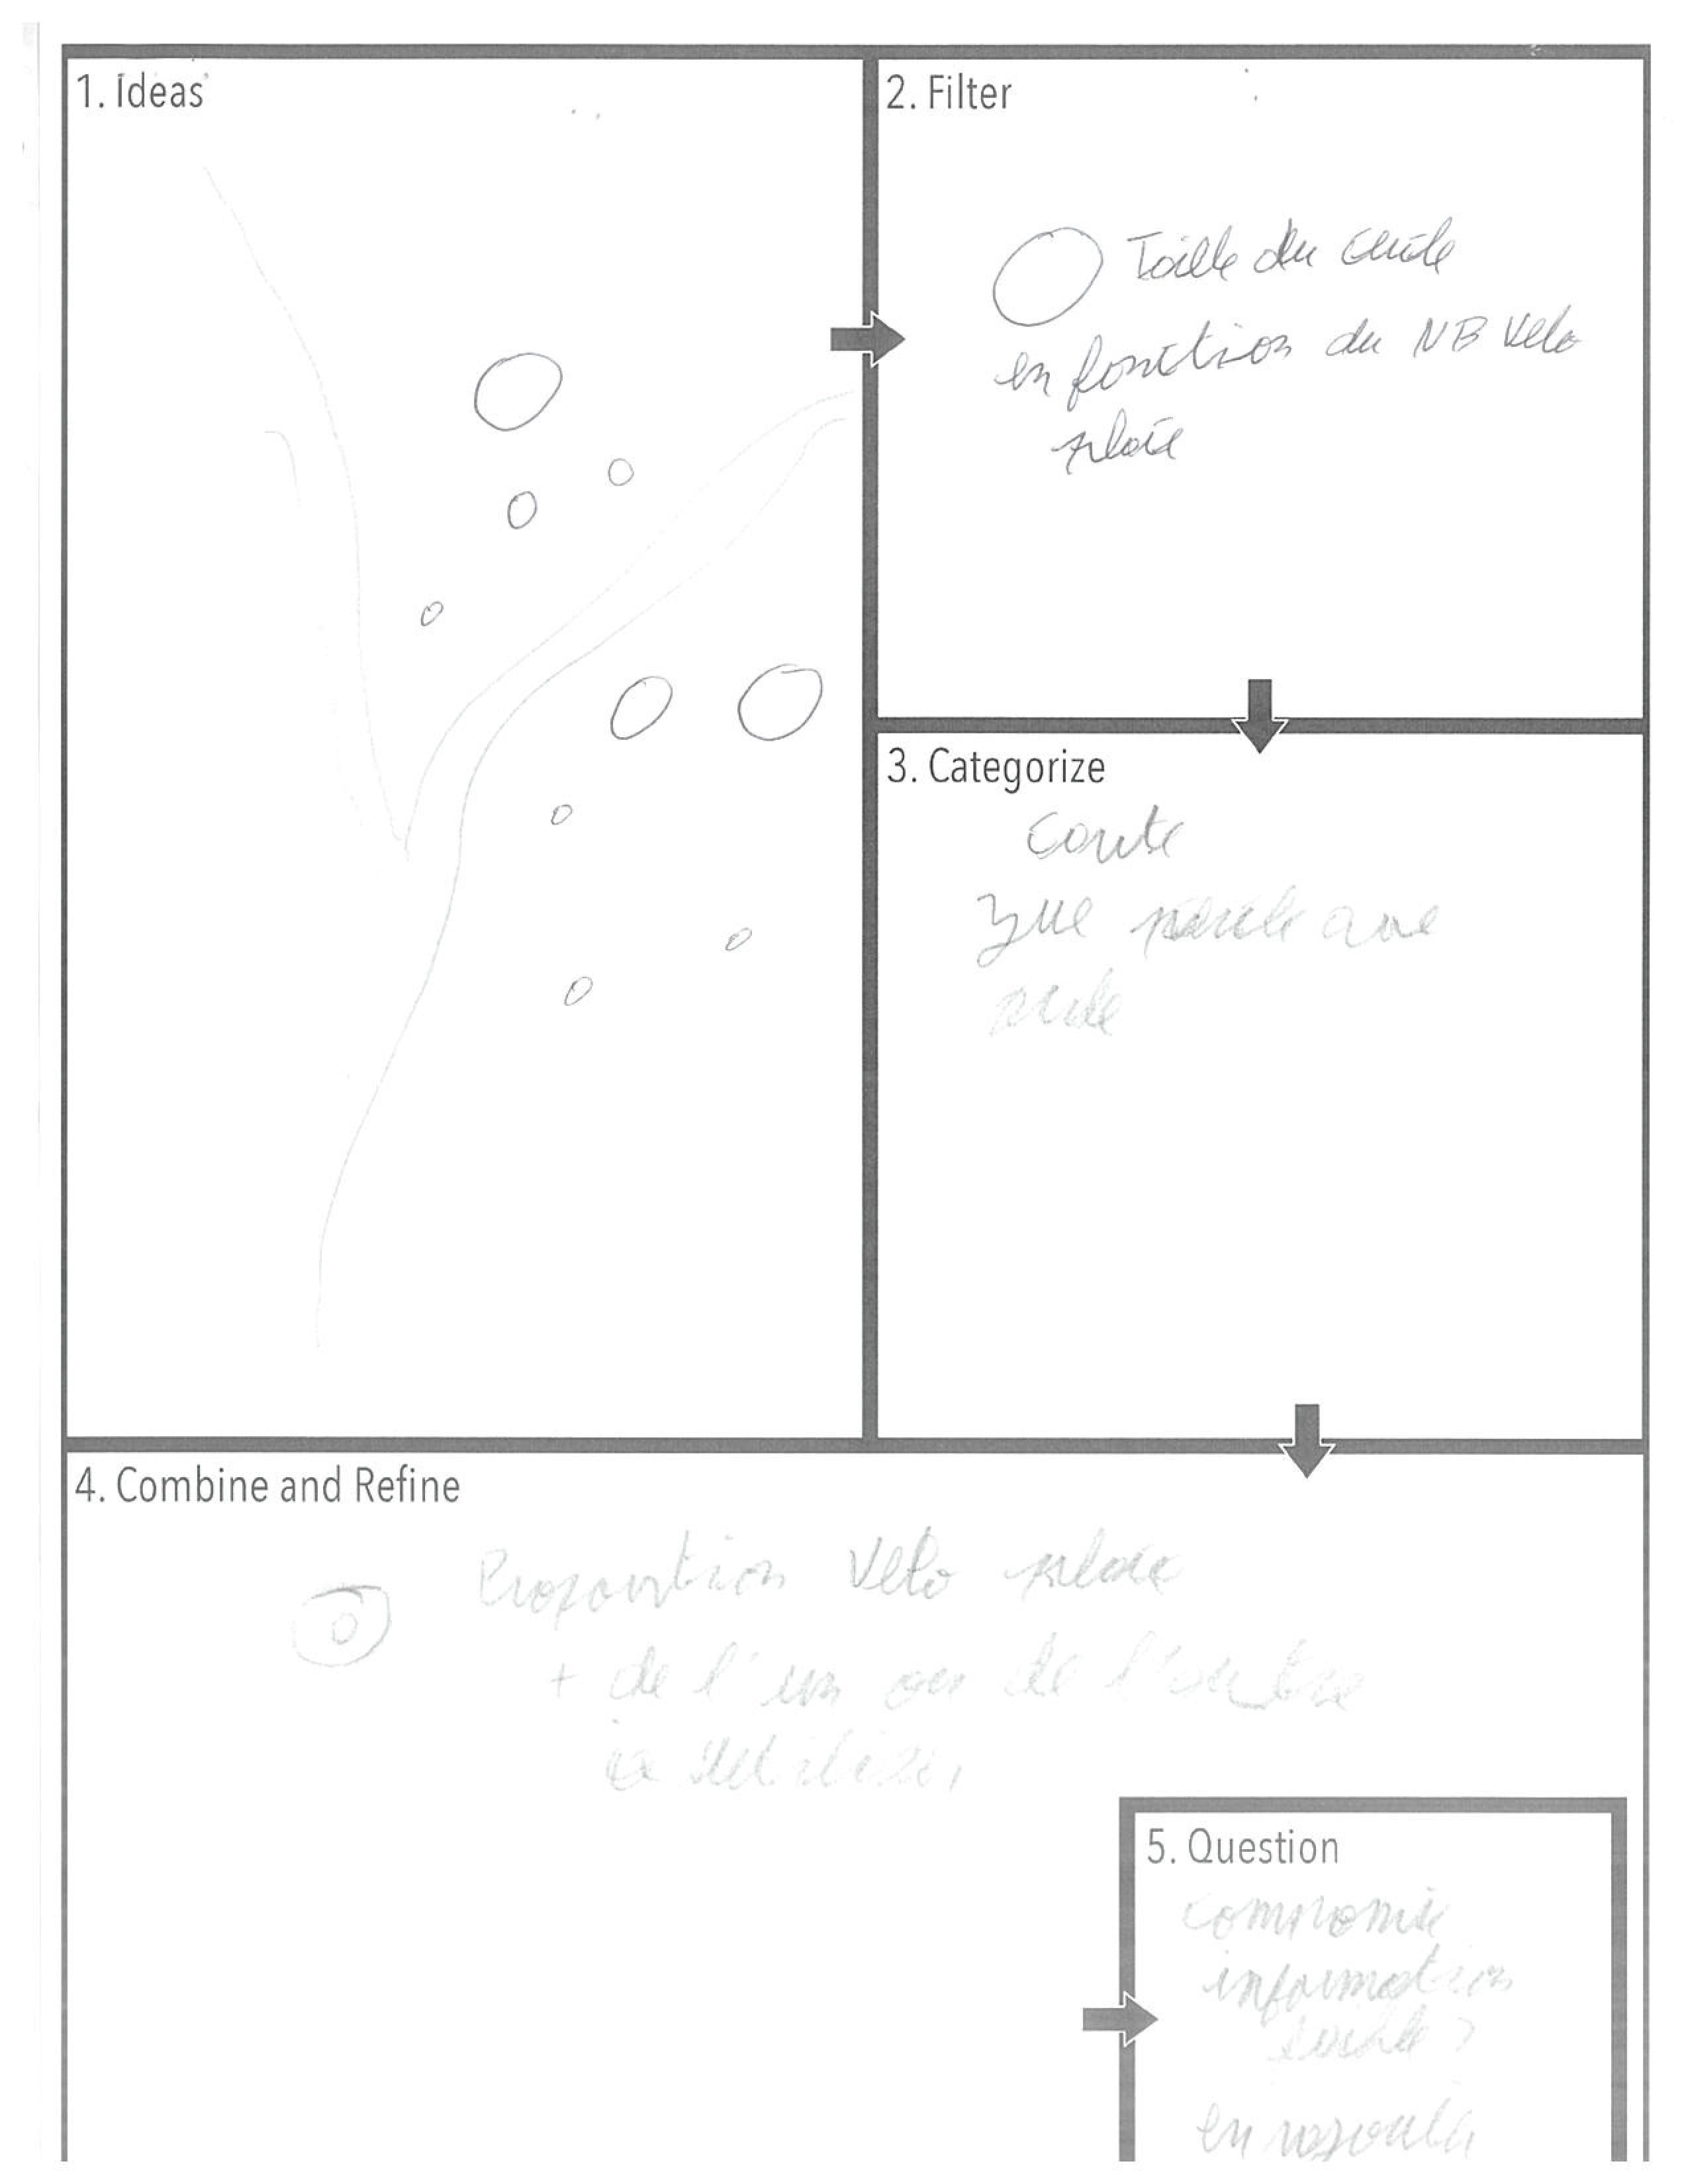 1. Ideas
2. Filter
Taille du cercle
en fonction du NB Velo
place
3. Categorize
Carte
avec
cercle
4. Combine and Refine
Proportion Velo place
+ de l'un ou de l'autre
a utiliser
5. Question
information
cercle ?
en